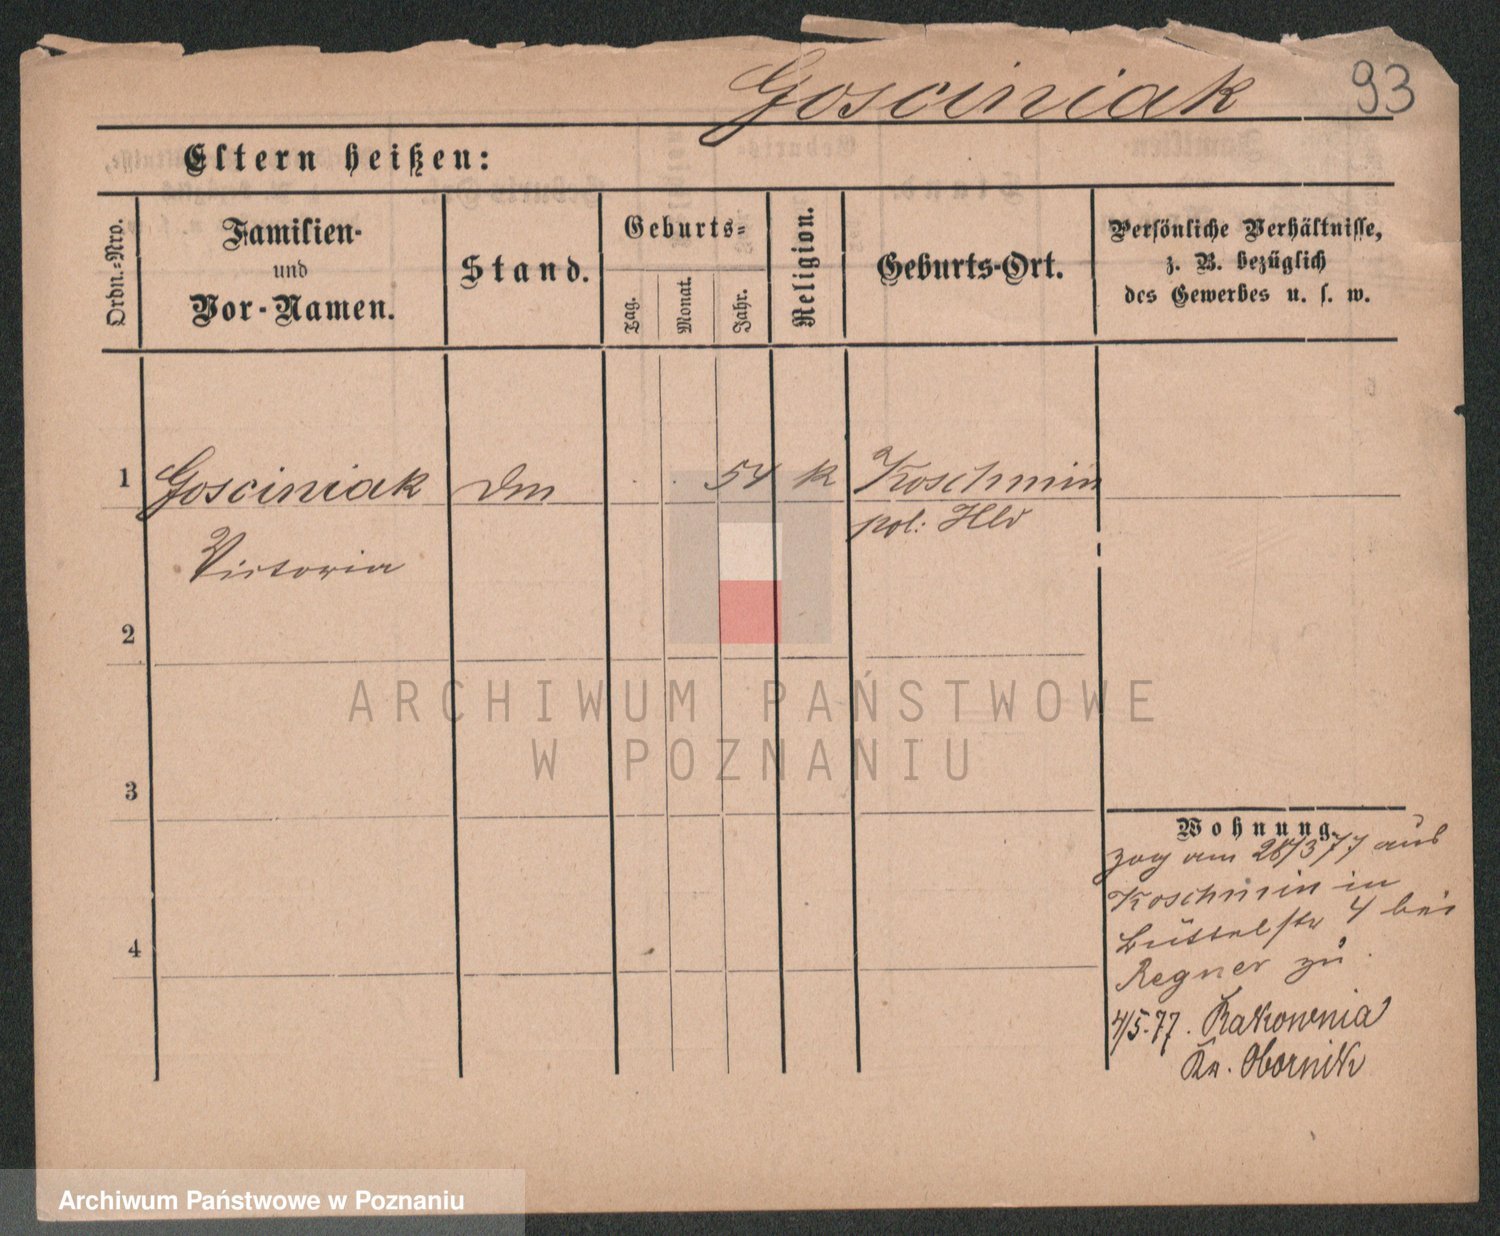 Gosciniak 93
Eltern heißen:
Ordn.-Nro.
Familien-
und
Vor-Namen.
Stand.
Geburts-
Tag.
Monat.
Jahr.
Religion.
Geburts-Ort.
Persönliche Verhältnisse,
z. B. bezüglich
des Gewerbes u. s. w.
1 Gosciniak 54 k Koschmin
pol:
Victoria
2
3
4
Wohnung.
zog am 28/3 77 aus
Koschmin in
Büttelstr 4 bei
Regner zu
4/5.77. Rakownia
Kr. Obornik
ARCHIWUM PAŃSTWOWE
W POZNANIU
Archiwum Państwowe w Poznaniu